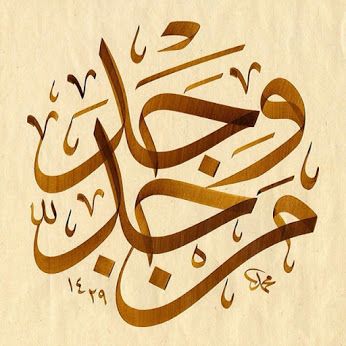 مَن جَدَّ
وَجَدَ
محمد
١٤٢٩